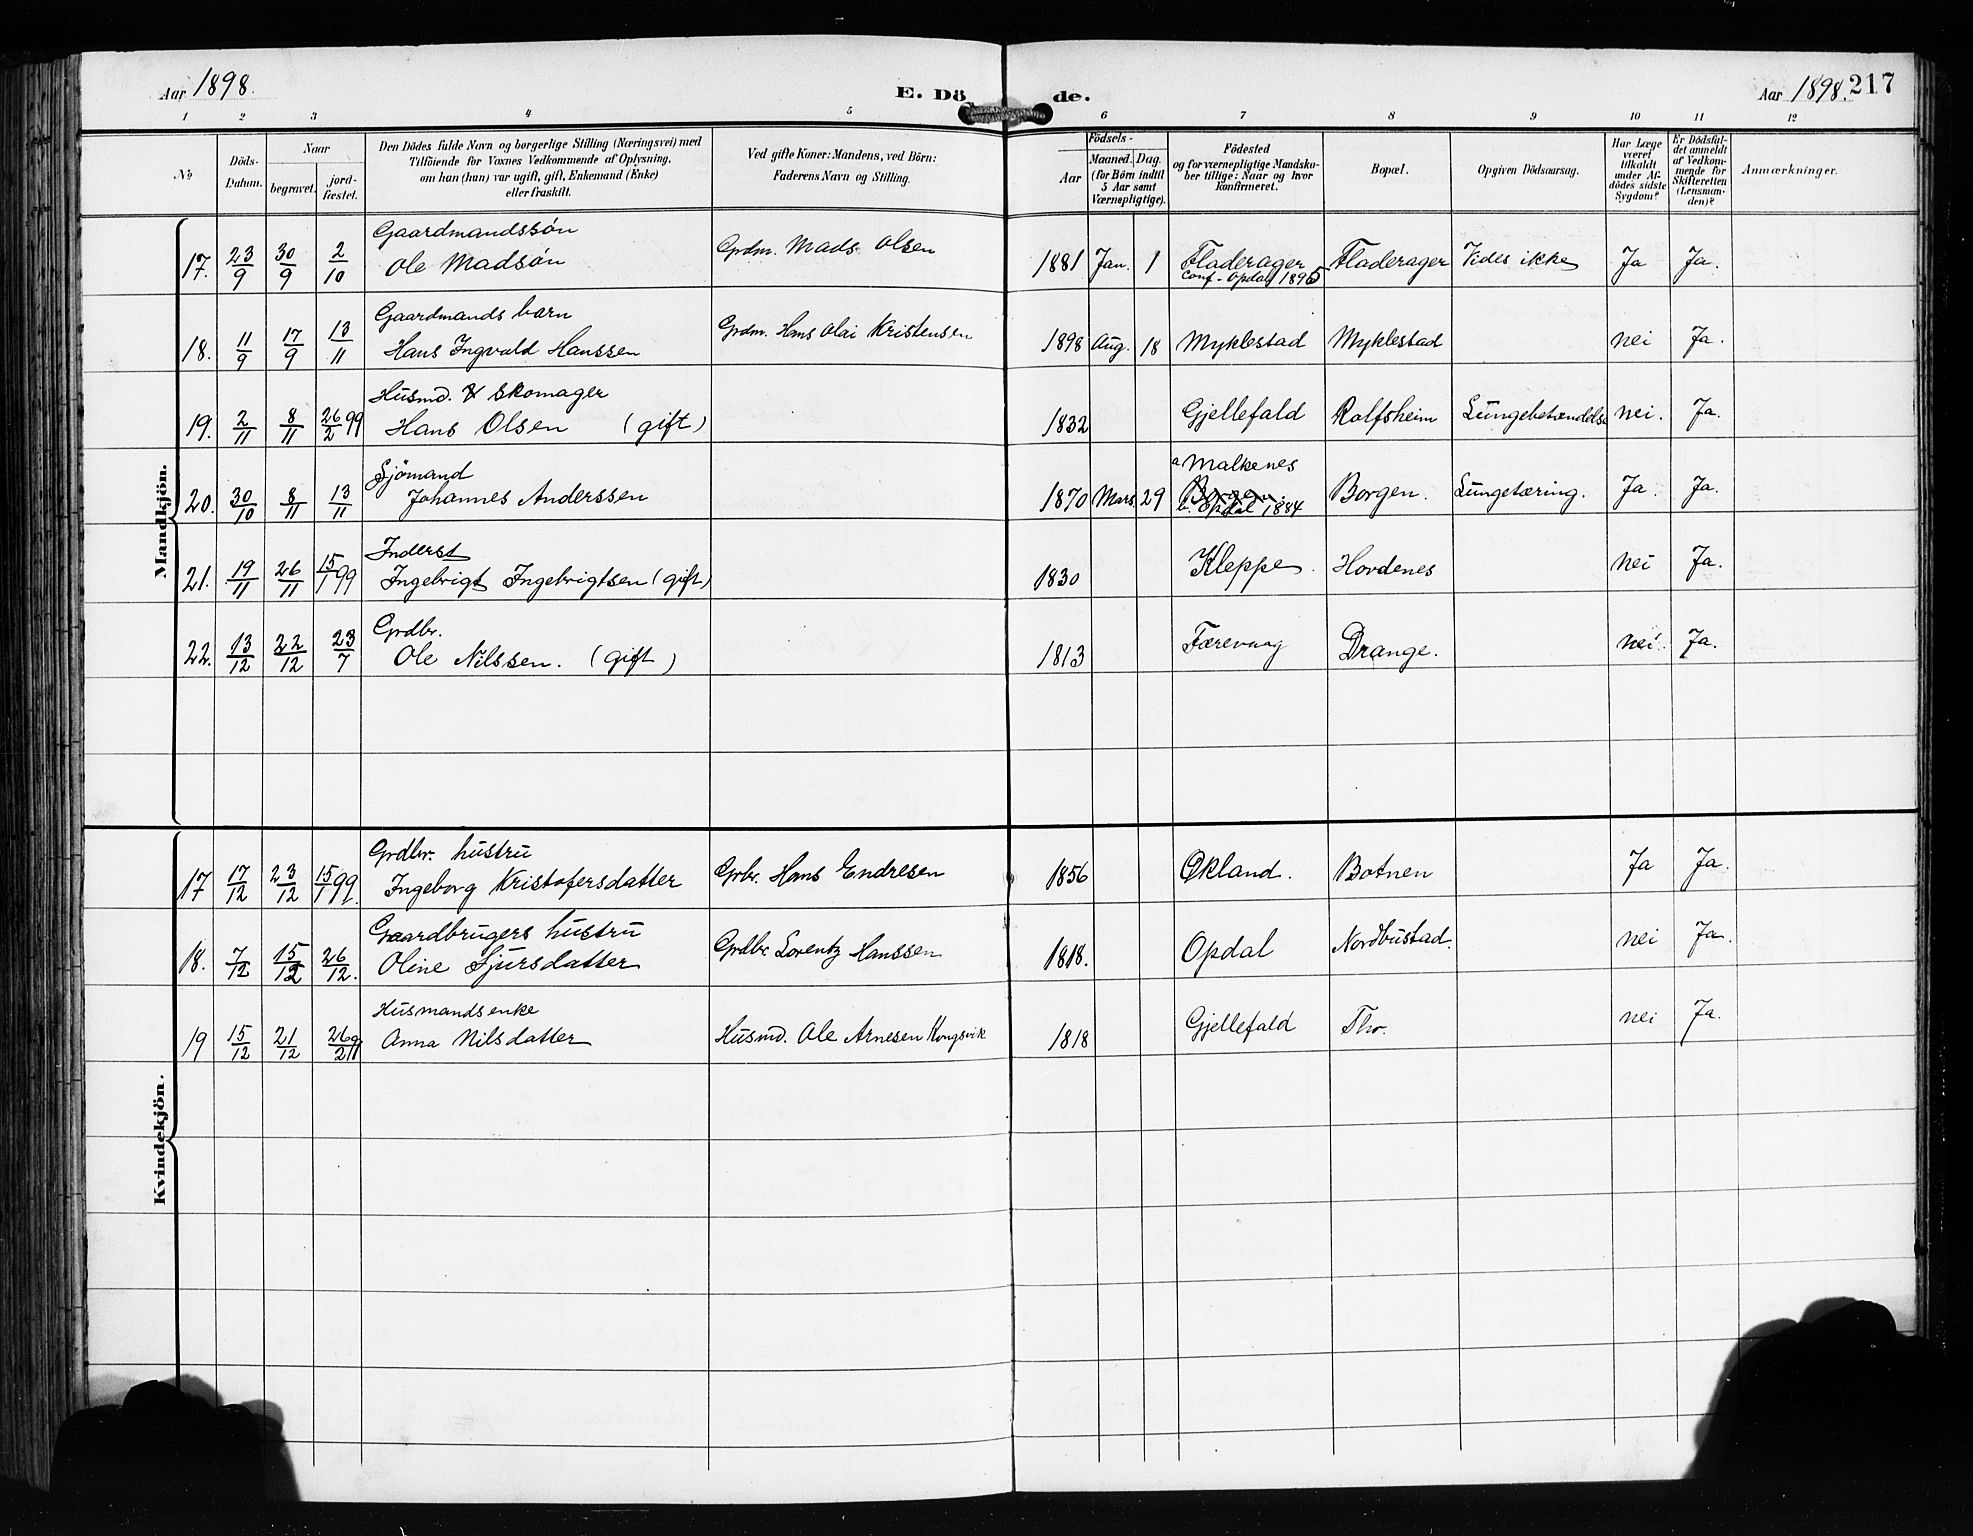 Aar 1898. E. Dö de. Aar 1898. 217
1 2 3 4 5 6 7 8 9 10 11 12
No
Döds-Datum.
Naar
begravet.
jord-fæstet.
Den Dödes fulde Navn og borgerlige Stilling (Næringsvei) med
Tilföiende for Voxnes Vedkommende af Oplysning,
om han (hun) var ugift, gift, Enkemand (Enke)
eller fraskilt.
Ved gifte Koner: Mandens, ved Börn:
Faderens Navn og Stilling.
Födsels-
Aar
Maaned. Dag.
(for Börn indtil
5 Aar samt
Værnepligtige).
Födested
og for værnepligtige Mandska-
ber tillige: Naar og hvor
konfirmeret.
Bopæl.
Opgiven Dödsaarsag.
Har Læge
været
tilkaldt
under Af-
dödes sidste
Sygdom?
Er Dödsfal-
det anmeldt
af Vedkom-
mende for
Skifteretten
(Lensman-
den)?
Anmærkninger.
Mandkjön.
Gaardmandssøn
17. 23/9 30/9 2/10 Ole Madsøn Grdm. Mads Olsen 1881 Jan. 1 Fladerager Fladerager Vides ikke Ja Ja.
Conf. Opdal 1895
Gaardmands barn
18. 11/9 17/9 13/11 Hans Ingvald Hanssen Grdm. Hans Olai Kristensen 1898 Aug. 18 Myklestad Myklestad nei Ja.
Husmd. & Skomager
19. 2/11 8/11 26/2 99 Hans Olsen (gift) 1832 Gjellefald Rolfsheim Lungebetændelse nei. Ja.
Sjömand a Malkenes
20. 30/10 8/11 13/11 Johannes Anderssen 1870 Mars 29 Borgen Borgen. Lungetæring. Ja. Ja.
b. Opdal 1884
Inderst
21. 19/11 26/11 15/1 99 Ingebrigt Ingebrigtsen (gift) 1830 Kleppe. Hovdenes nei Ja.
Grdbr.
22. 13/12 22/12 23/7 Ole Nilssen. (gift) 1813 Færevaag Drange. nei. Ja.
Kvindekjön.
Grdbr. hustru
17 17/12 23/12 15/1 99. Ingeborg Kristofersdatter Grbr. Hans Endresen 1856 Økland. Botnen Ja Ja.
Gaardbrugers hustru
18. 7/12 15/12 26/12. Oline Sjursdatter Grdbr. Lorentz Hanssen 1818. Opdal Nordbustad. nei Ja.
Husmandsenke
19 15/12 21/12 Anna Nilsdatter Husmd. Ole Arnesen Kongsvik 1818 Gjellefald Tho. nei Ja.